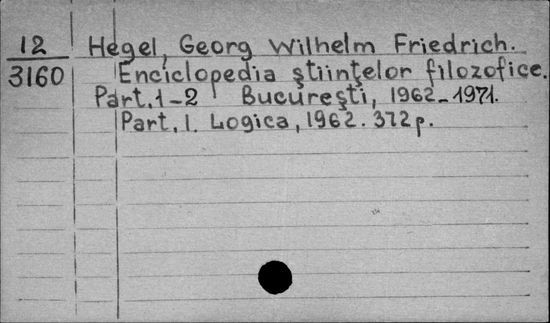 12 Hegel, Georg Wilhelm Friedrich.
3160 Enciclopedia ştiinţelor filozofice.
Part.1-2 Bucureşti, 1962-1971.
Part. 1. Logica, 1962. 372 p.